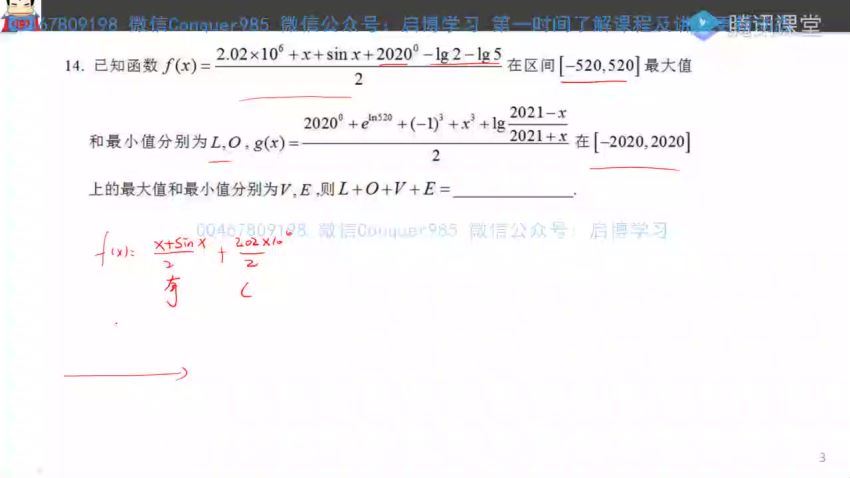 67809198 微信Conquer985 微信公众号：启博学习 第一时间了解课程及讲
腾讯课堂
14. 已知函数 f(x) = \frac{2.02×10^6 + x + sin x + 2020^0 − lg 2 − lg 5}{2} 在区间 [−520,520] 最大值
和最小值分别为 L,O , g(x) = \frac{2020^0 + e^{ln520} + (−1)^3 + x^3 + lg \frac{2021−x}{2021+x}}{2} 在 [−2020,2020]
上的最大值和最小值分别为V,E ,则 L+O+V+E = ____________.
00467809198 微信Conquer985 微信公众号：启博学习
f(x)= \frac{x+sin x}{2} + \frac{2.02×10^6}{2}
奇 C
3